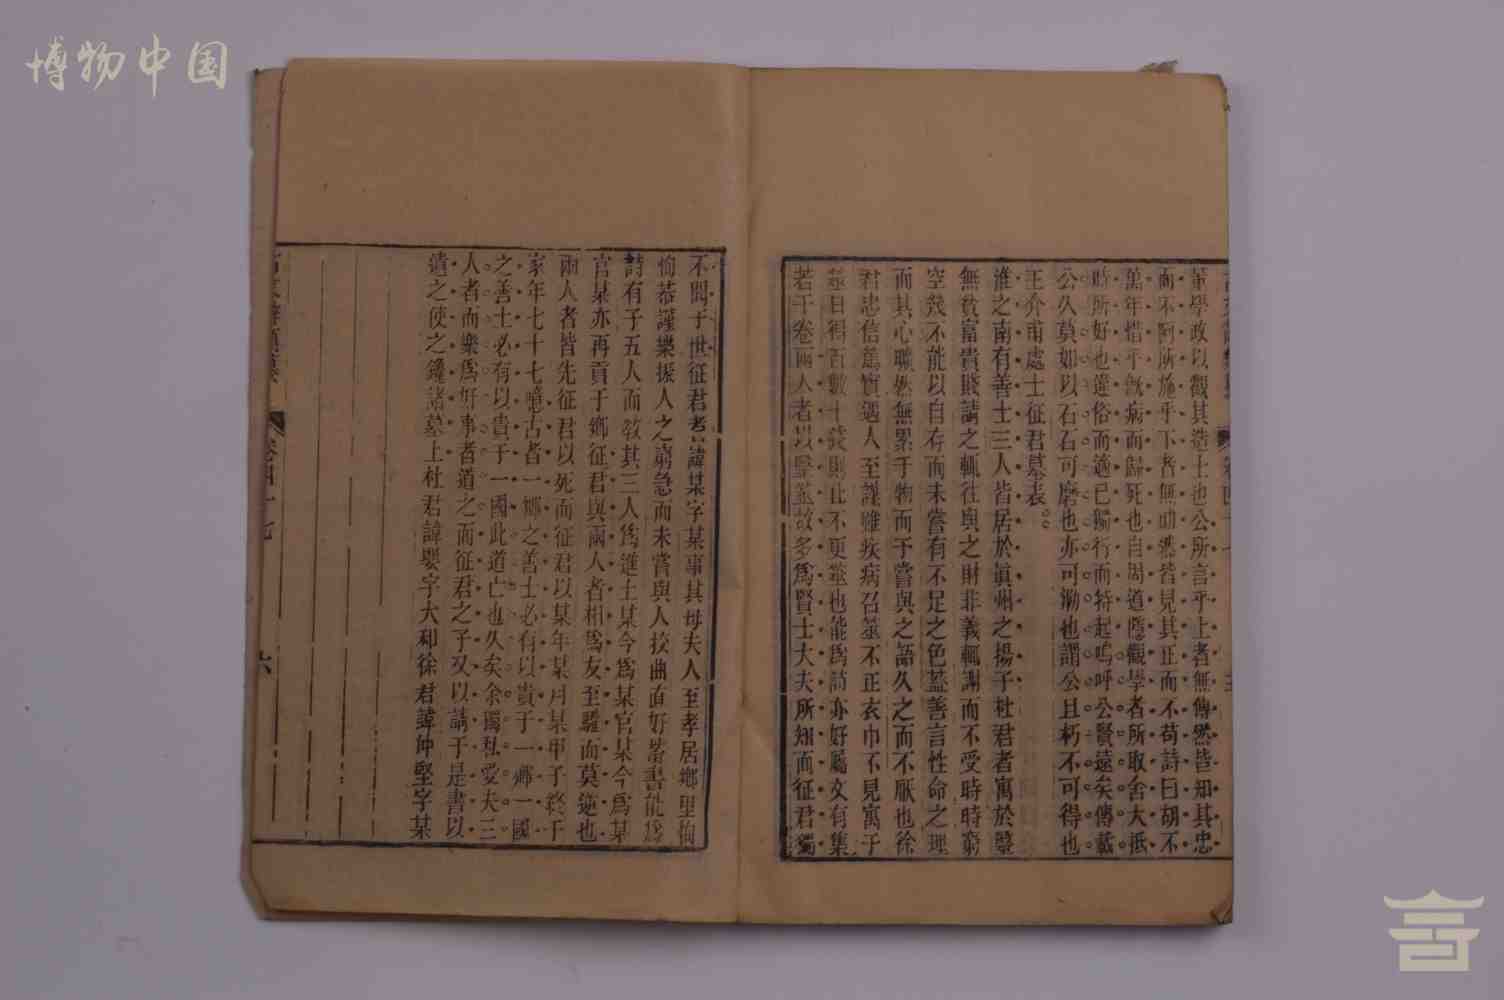 董學政以觀其造士也公所言乎上者無傳然皆知其忠
而不阿所施乎下者無助然皆見其正而不苟詩曰胡不
萬年惜乎既病而歸死也自周道隱觀學者所取舍大抵
時所好也違俗而適己獨行而特起嗚呼公賢遠矣傳載
公久莫如以石石可磨也亦可泐也謂公且朽不可得也
王介甫處士征君墓表
淮之南有善士三人皆居於眞州之揚子杜君者寓於毉
無貧富貴賤請之輒往與之財非義輒謝而不受時時窮
空幾不能以自存而未嘗有不足之色蓋善言性命之理
而其心曠然無累于物而予嘗與之語久之而不厭也徐
君忠信篤實遇人至謹雖疾病召筮不正衣巾不見寓于
筮日得百數十錢則止不更筮也能爲詩亦好屬文有集
若干卷兩人者以毉筮故多爲賢士大夫所知而征君獨
不聞于世征君者諱某字某事其母夫人至孝居鄉里恂
恂恭謹樂振人之窮急而未嘗與人校曲直好蓄書能爲
詩有子五人而敎其三人爲進士某今爲某官某今爲某
官某亦再貢于鄉征君與兩人者相爲友至驩而莫逆也
兩人者皆先征君以死而征君以某年某月某甲子終于
家年七十七噫古者一鄉之善士必有以貴于一鄉一國
之善士必有以貴于一國此道亡也久矣余獨私愛夫三
人者而樂爲好事者道之而征君之子又以請于是書以
遺之使之鑱諸墓上杜君諱嬰字大和徐君諱仲堅字某
卷四十七
六
博物中国